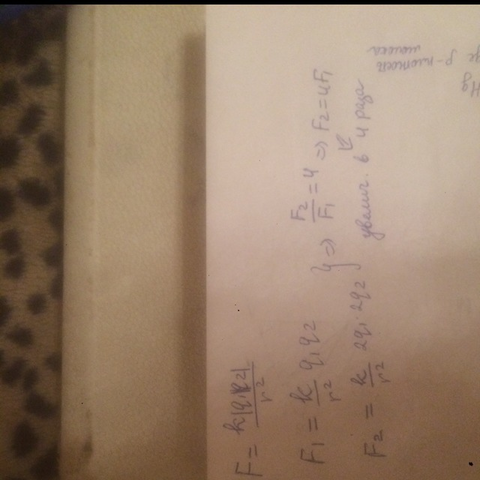 F = k|q₁||q₂| / r²
F₁ = k/r² q₁q₂
F₂ = k/r² 2q₁·2q₂ } => F₂/F₁ = 4 => F₂ = 4F₁
увелич. в 4 раза
ρ - плотность